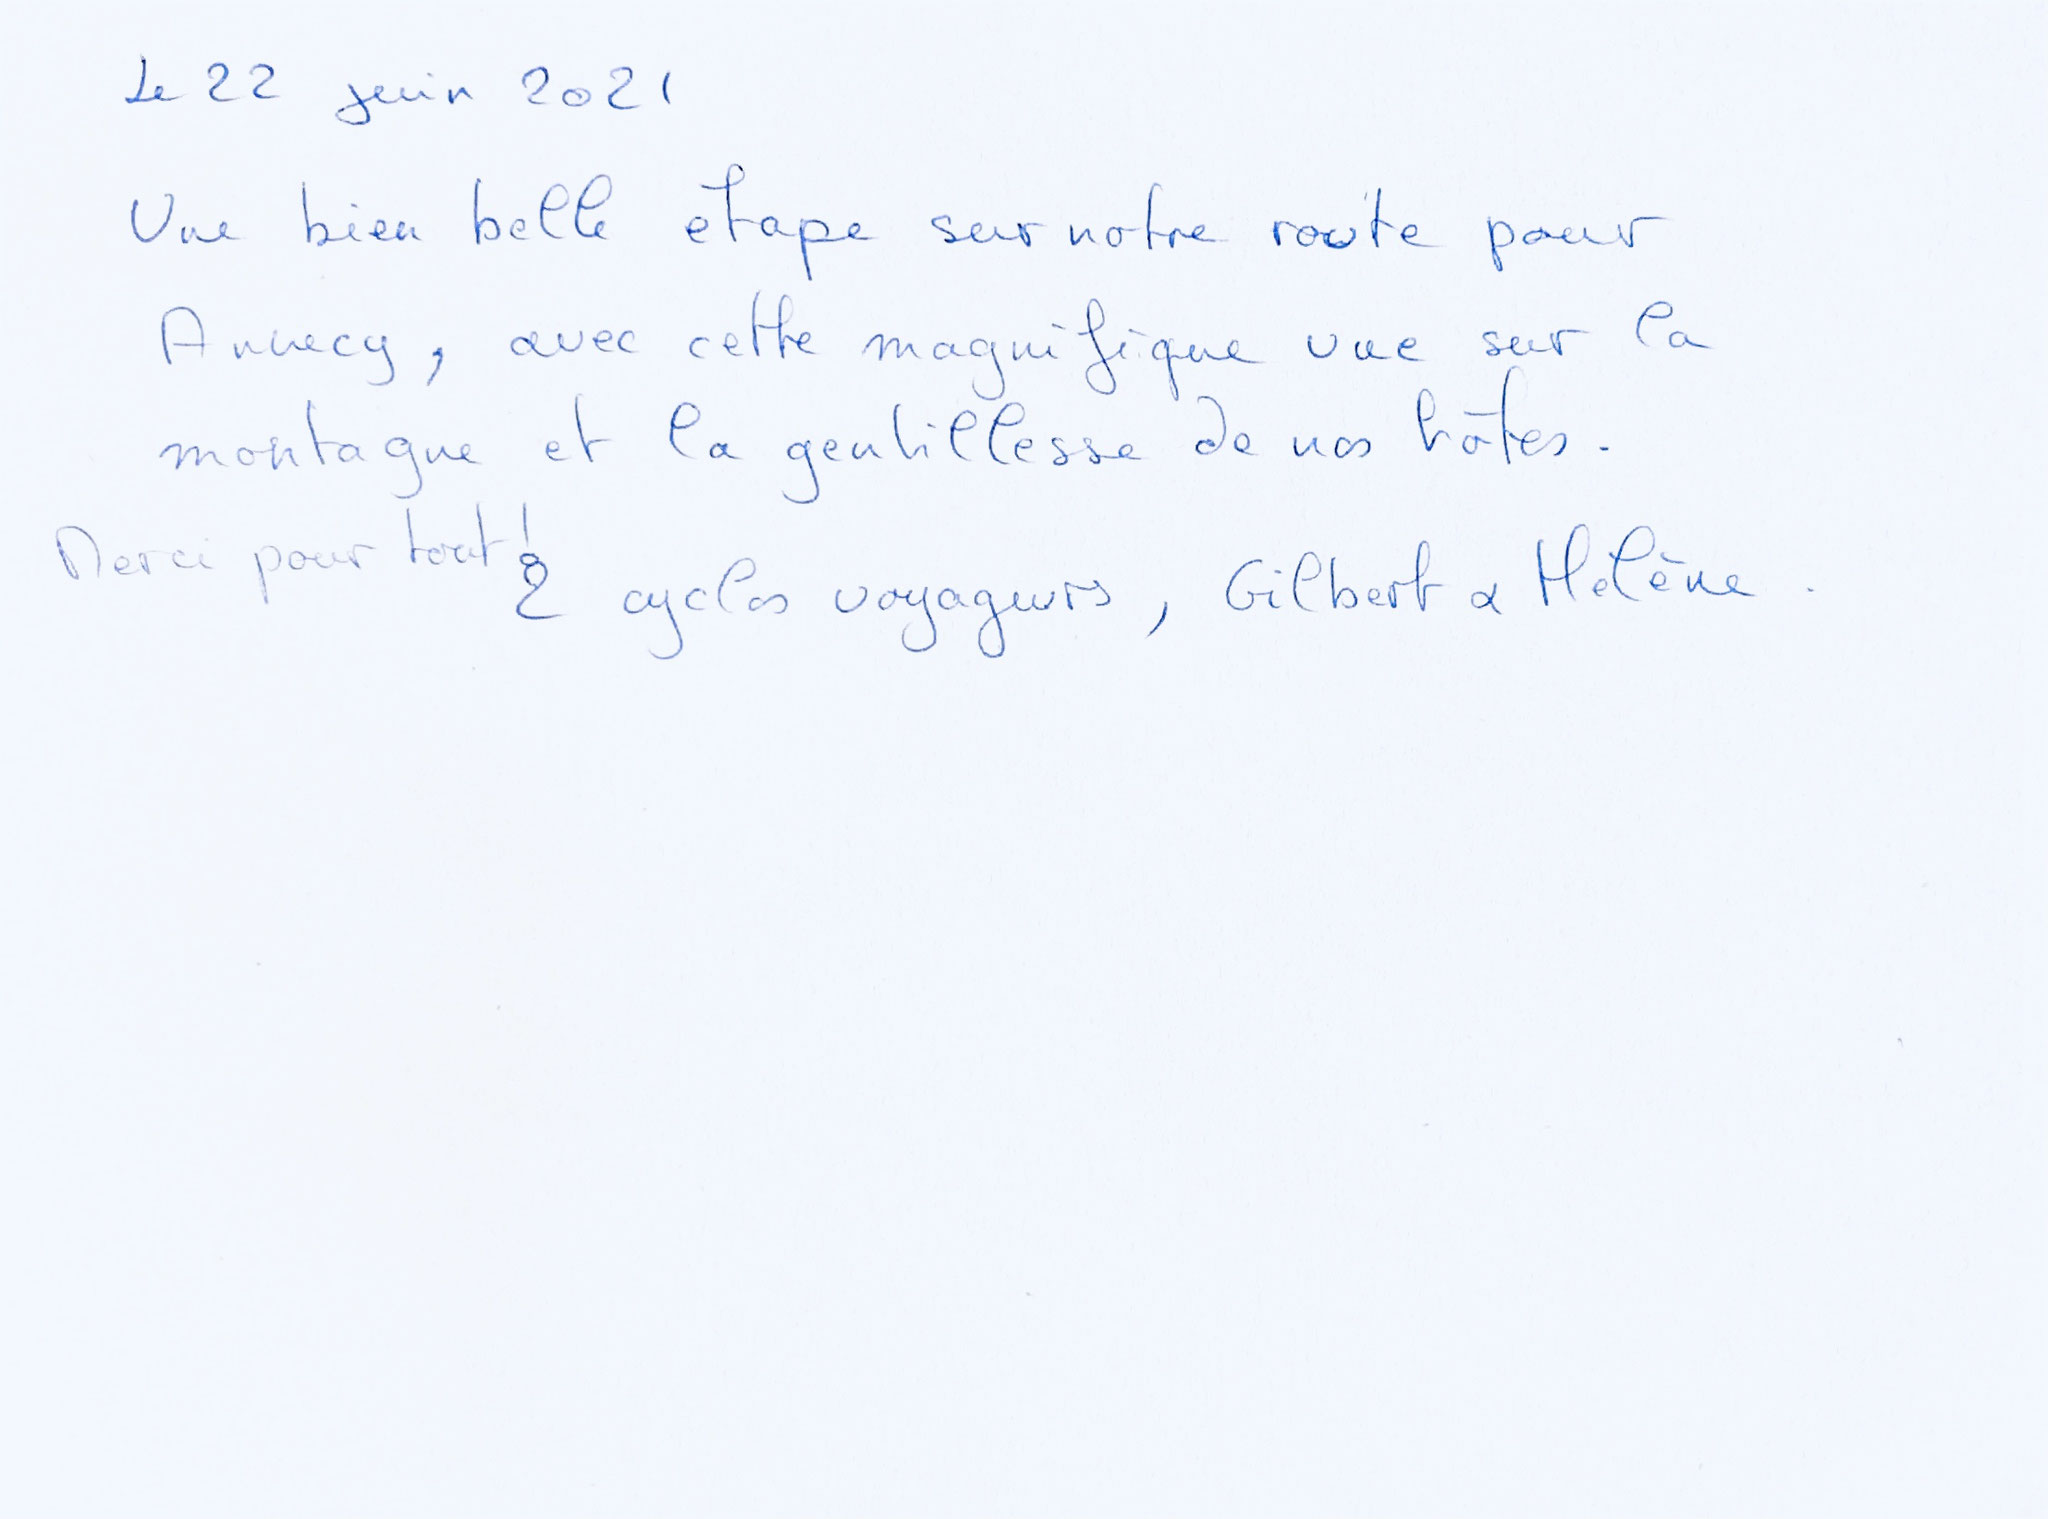 Le 22 juin 2021
Une bien belle etape sur notre route pour
Annecy, avec cette magnifique vue sur la
montagne et la gentillesse de nos hôtes.
Merci pour tout !
2 cyclos voyageurs, Gilbert & Hélène.